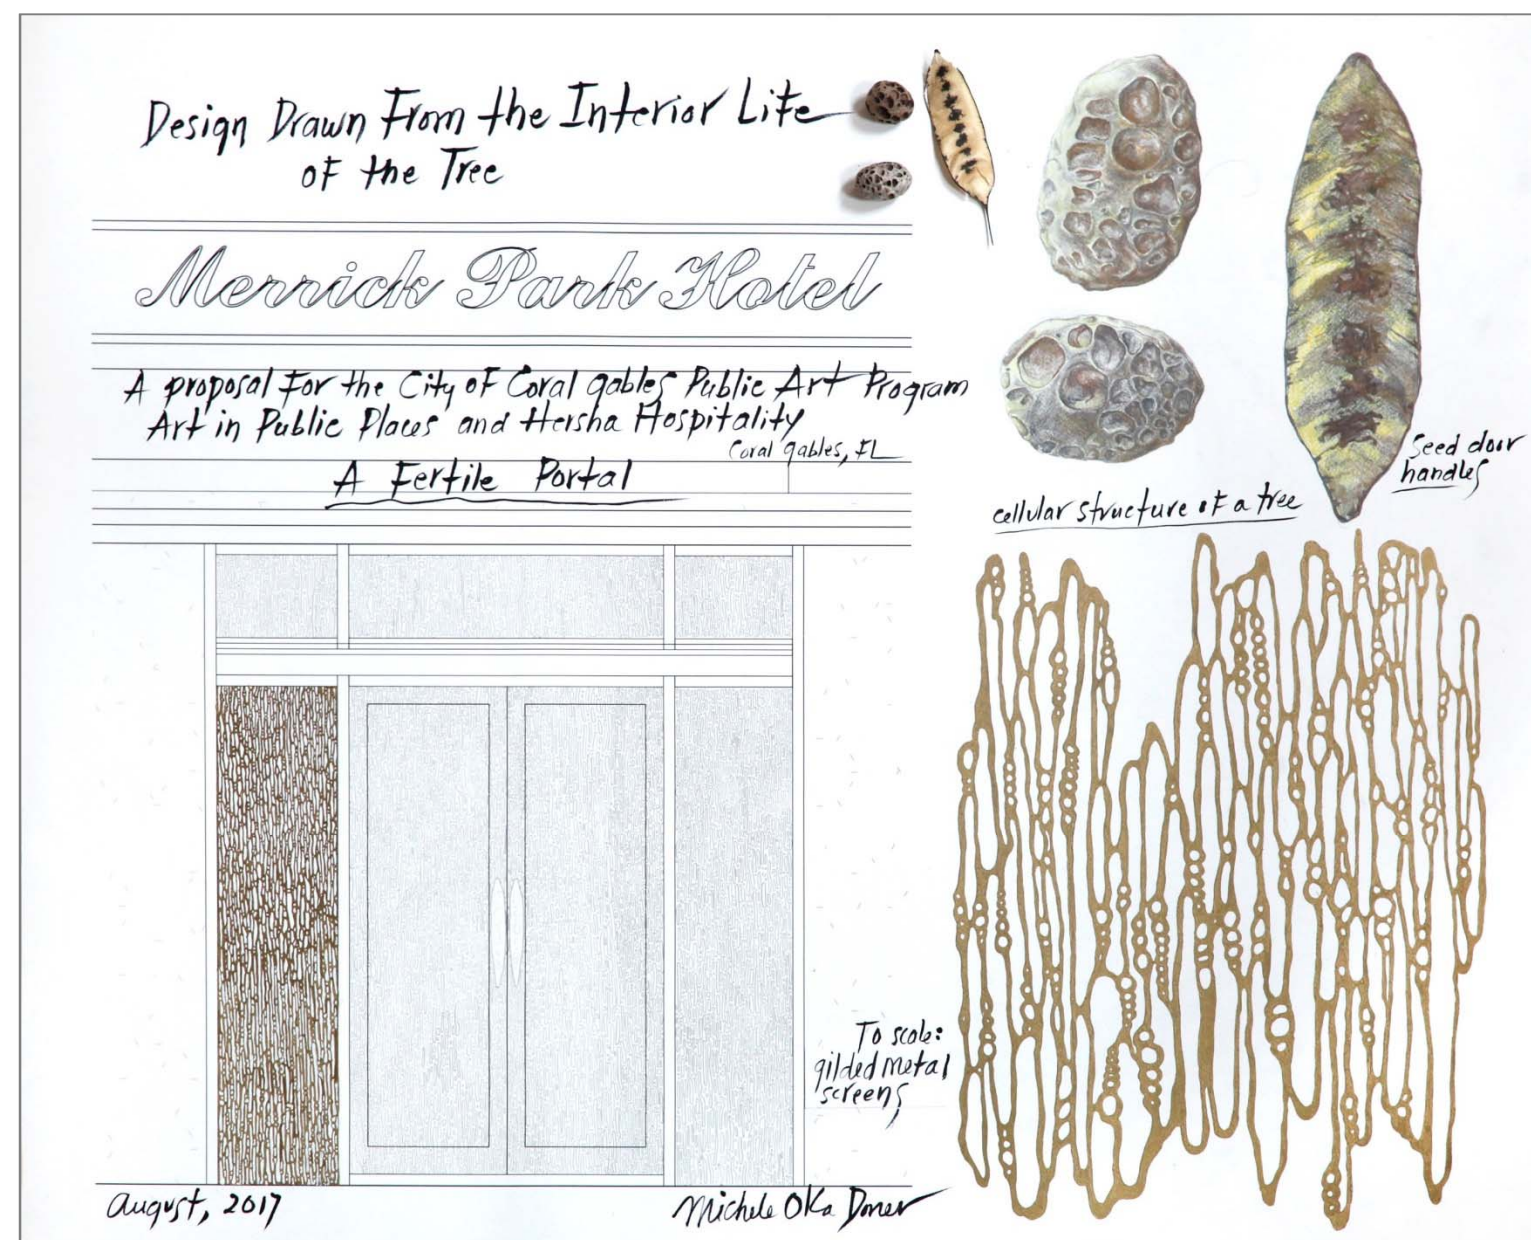 Design Drawn From the Interior Life
of the Tree
Merrick Park Hotel
A proposal for the City of Coral gables Public Art Program
Art in Public Places and Hersha Hospitality
Coral gables, FL
A Fertile Portal
Seed door
handles
cellular structure of a tree
To scale:
gilded metal
screens
August, 2017
Michele Oka Doner